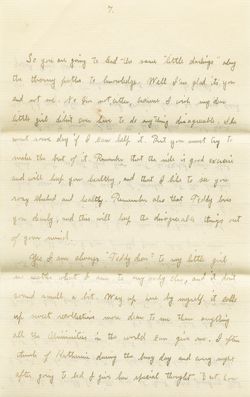 7.
So you are going to lead the same "little darlings" along
the thorny paths to knowledge. Well I am glad it's you
and not me. No I'm not either, because I wish my dear
little girl didn't ever have to do anything disagreeable. She
wont some day if I can help it. But you must try to
make the best of it. Remember that the ride is good exercise
and will keep you healthy, and that I like to see you
rosy cheeked and healthy. Remember also that Teddy loves
you dearly, and this will keep the disagreeable things out
of your mind.
Yes I am always "Teddy dear" to my little girl
no matter what I am to any body else, and it don't
sound small a bit. Way up here by myself, it calls
up sweet recollections more dear to me than anything
all the in the world can give me. I often
think of Katherine during the busy day and every night
after going to bed I give her special thought.